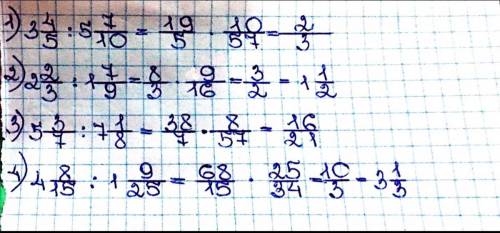 1) 3 4/5 : 5 7/10 = 19/5 · 10/57 = 2/3
2) 2 2/3 : 1 7/9 = 8/3 · 9/16 = 3/2 = 1 1/2
3) 5 3/7 : 7 1/8 = 38/7 · 8/57 = 16/21
4) 4 8/15 : 1 9/25 = 68/15 · 25/34 = 10/3 = 3 1/3